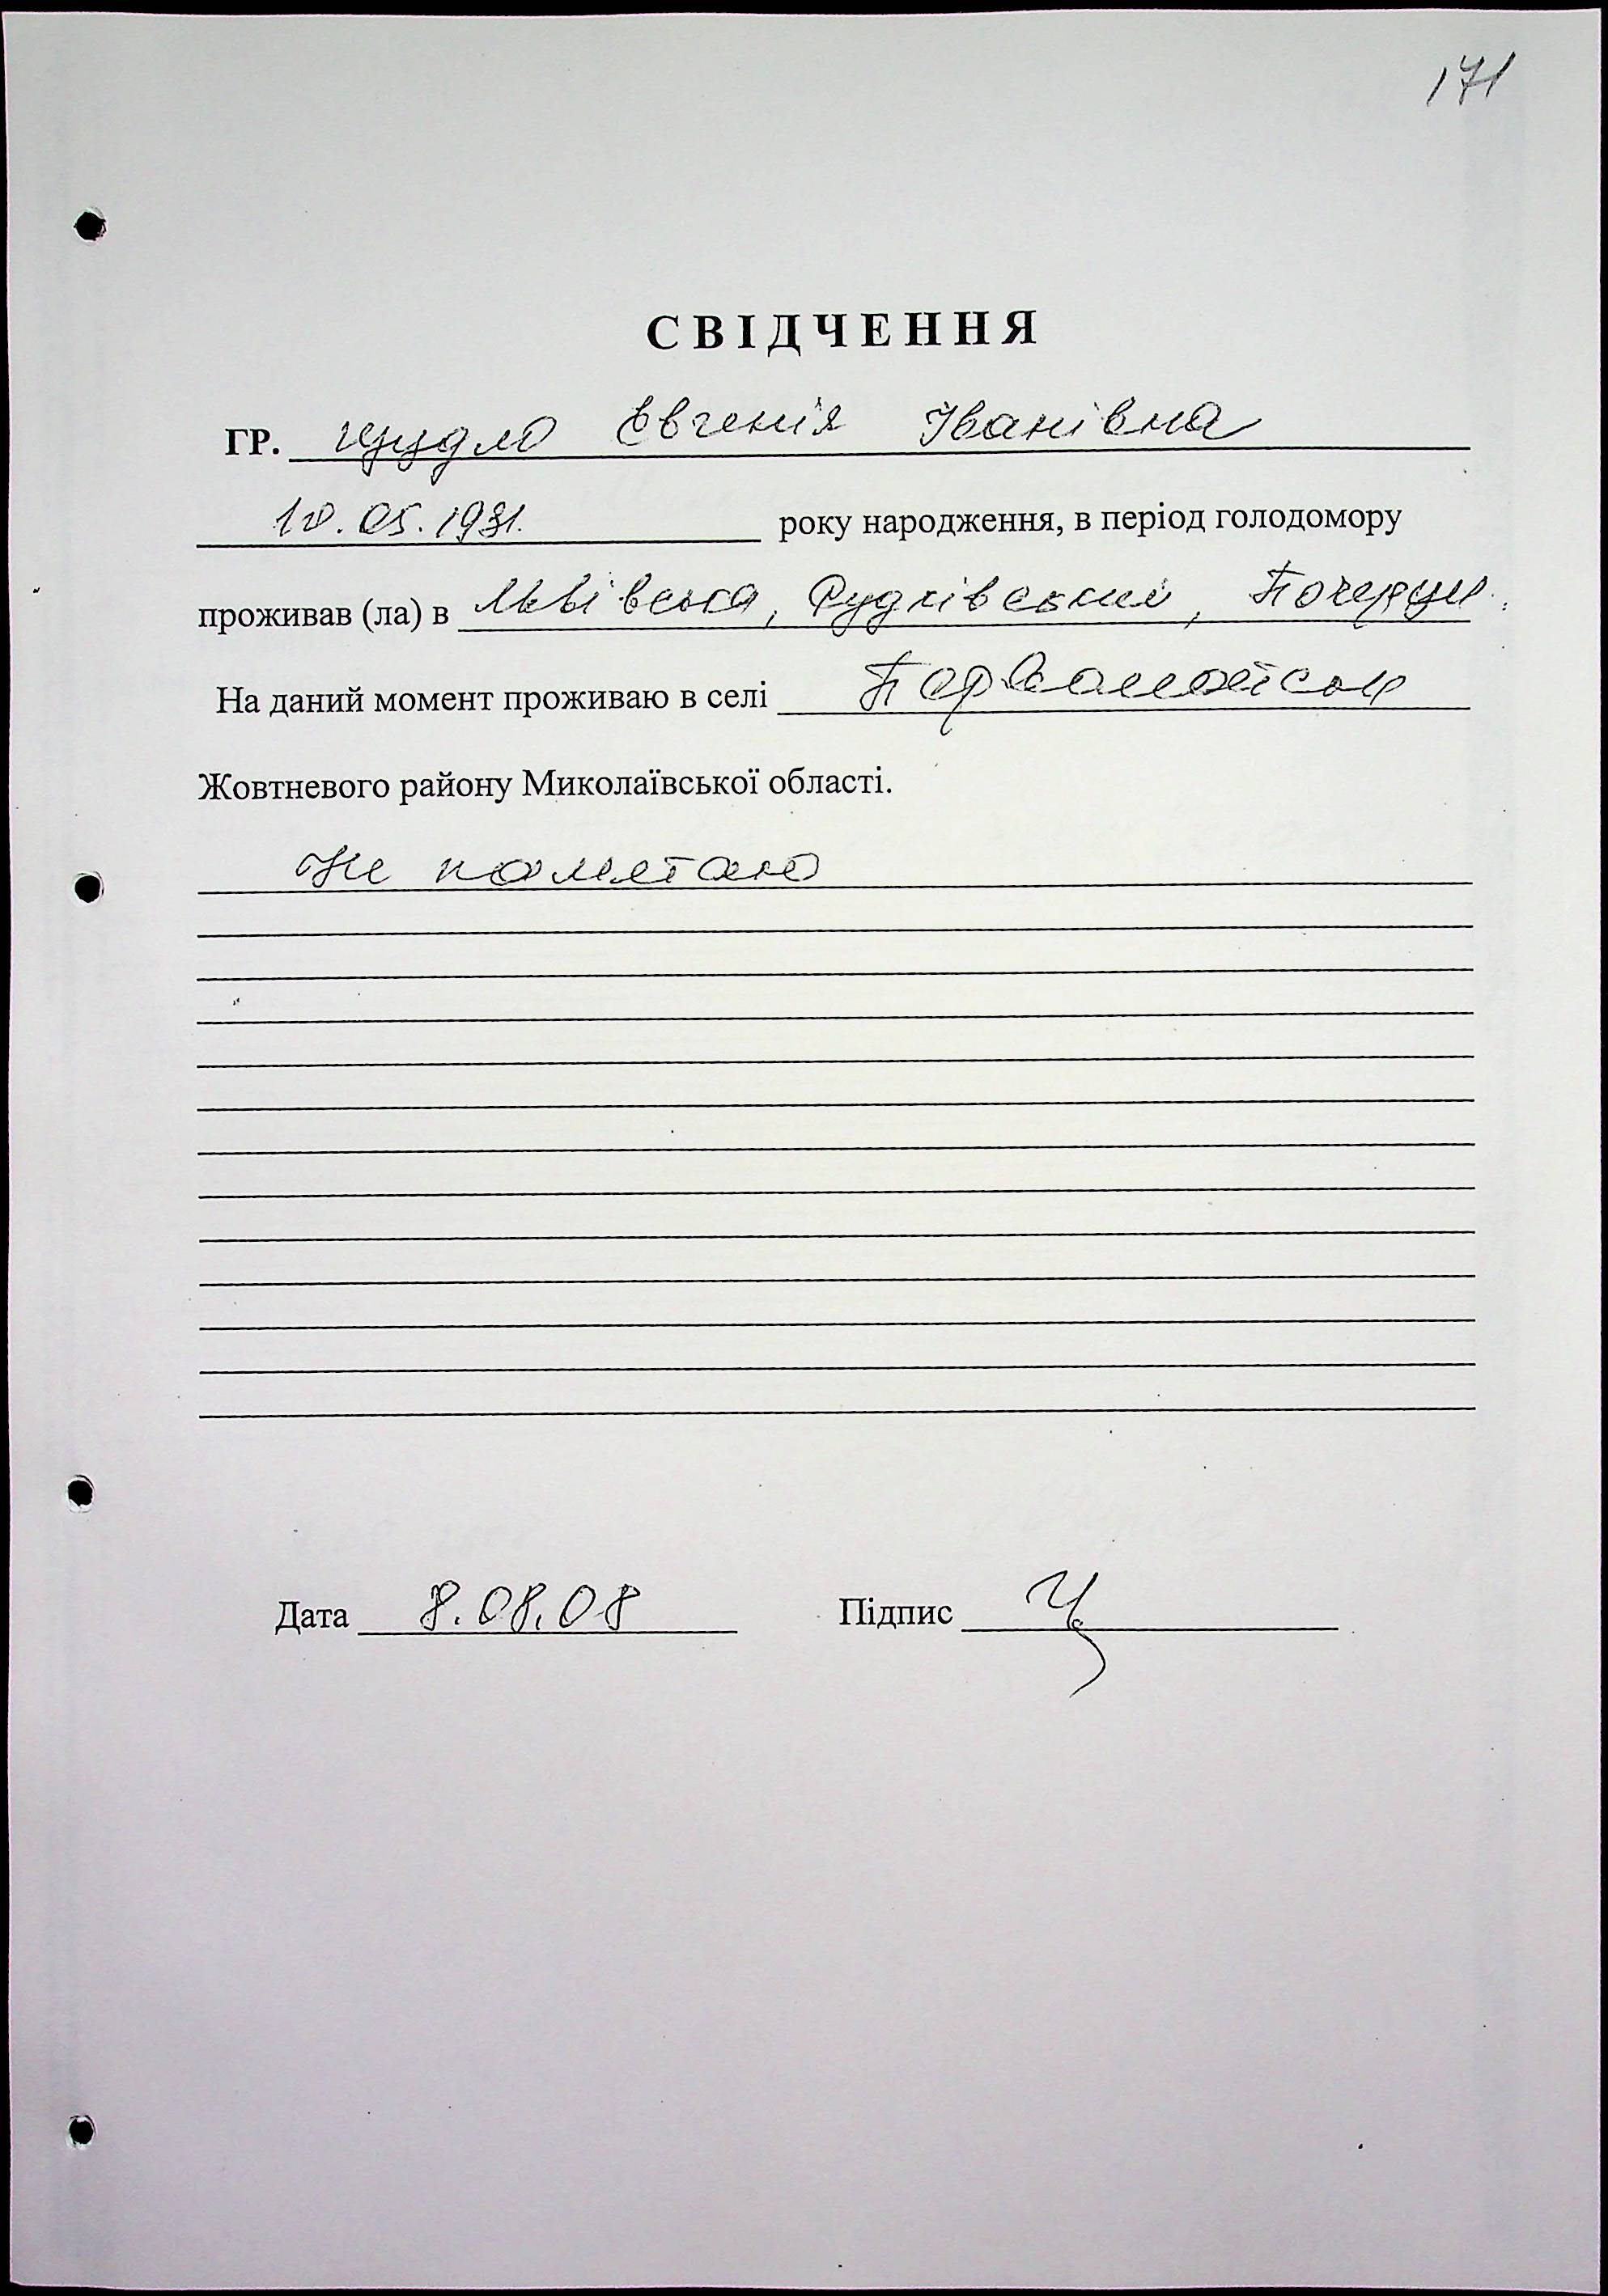 171
СВІДЧЕННЯ
ГР. Цудло Євгенія Іванівна
10.05.1931. року народження, в період голодомору
проживав (ла) в Львівська, Рудківський,
На даний момент проживаю в селі Первомайськ
Жовтневого району Миколаївської області.
Не пометаю
Дата 8.08.08 Підпис Ц